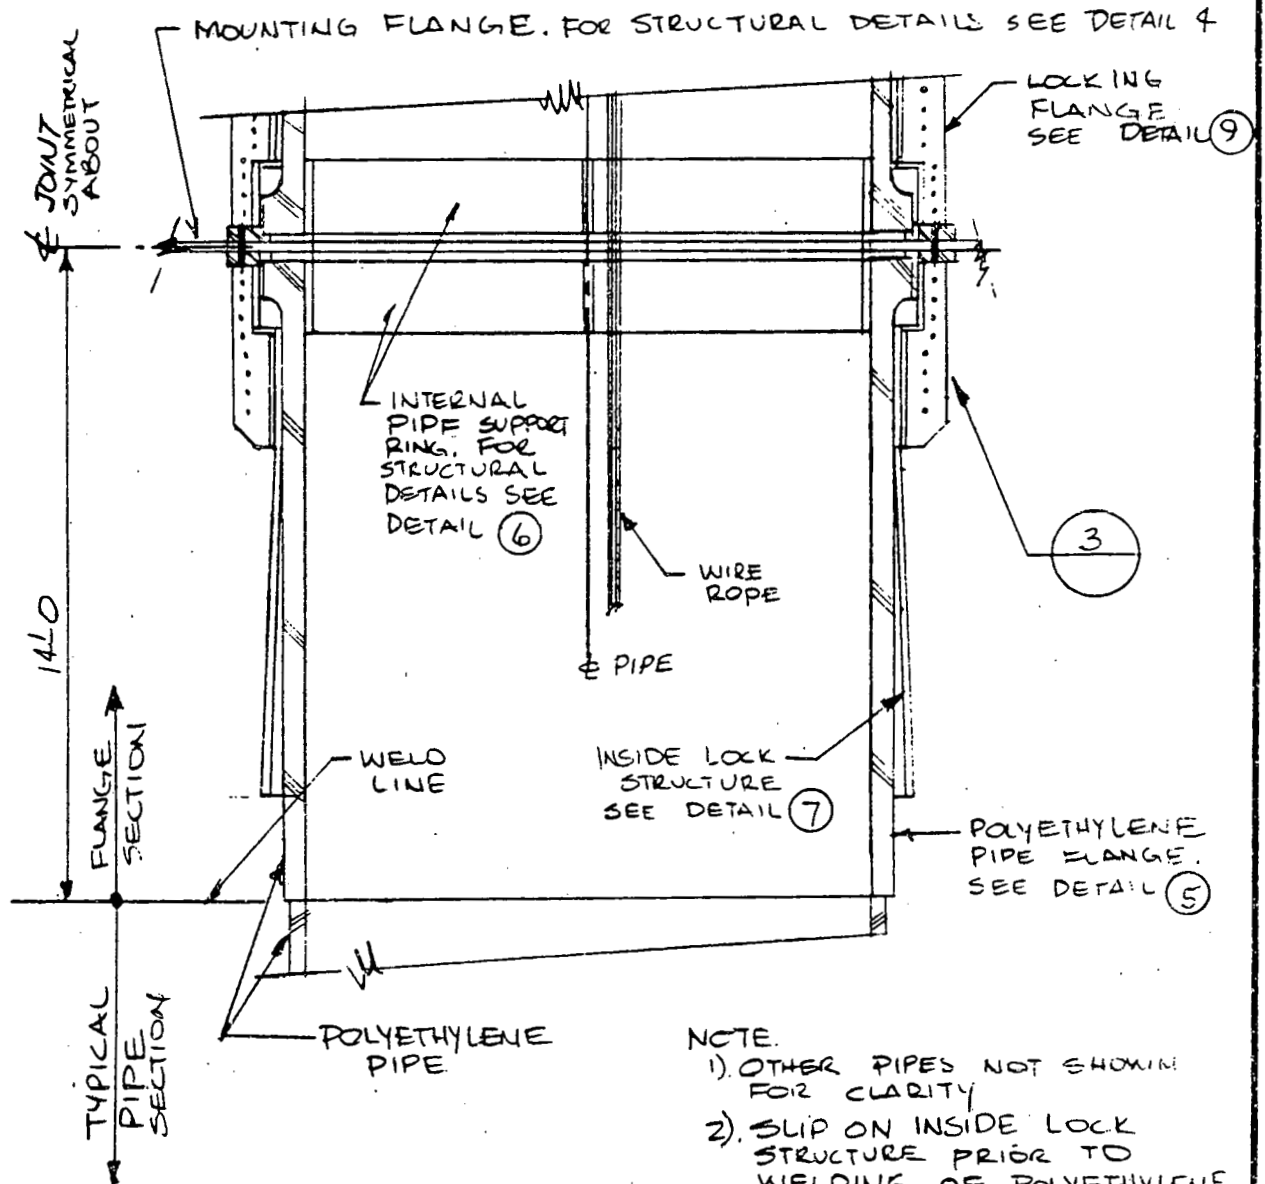 MOUNTING FLANGE. FOR STRUCTURAL DETAILS SEE DETAIL 4
LOCKING
FLANGE
SEE DETAIL 9
℄ JOINT
SYMMETRICAL
ABOUT
INTERNAL
PIPE SUPPORT
RING. FOR
STRUCTURAL
DETAILS SEE
DETAIL 6
3
WIRE
ROPE
℄ PIPE
FLANGE
SECTION
WELD
LINE
INSIDE LOCK
STRUCTURE
SEE DETAIL 7
POLYETHYLENE
PIPE FLANGE.
SEE DETAIL 5
TYPICAL
PIPE
SECTION
POLYETHYLENE
PIPE
NOTE.
1). OTHER PIPES NOT SHOWN
FOR CLARITY
2). SLIP ON INSIDE LOCK
STRUCTURE PRIOR TO
WELDING OF POLYETHYLENE